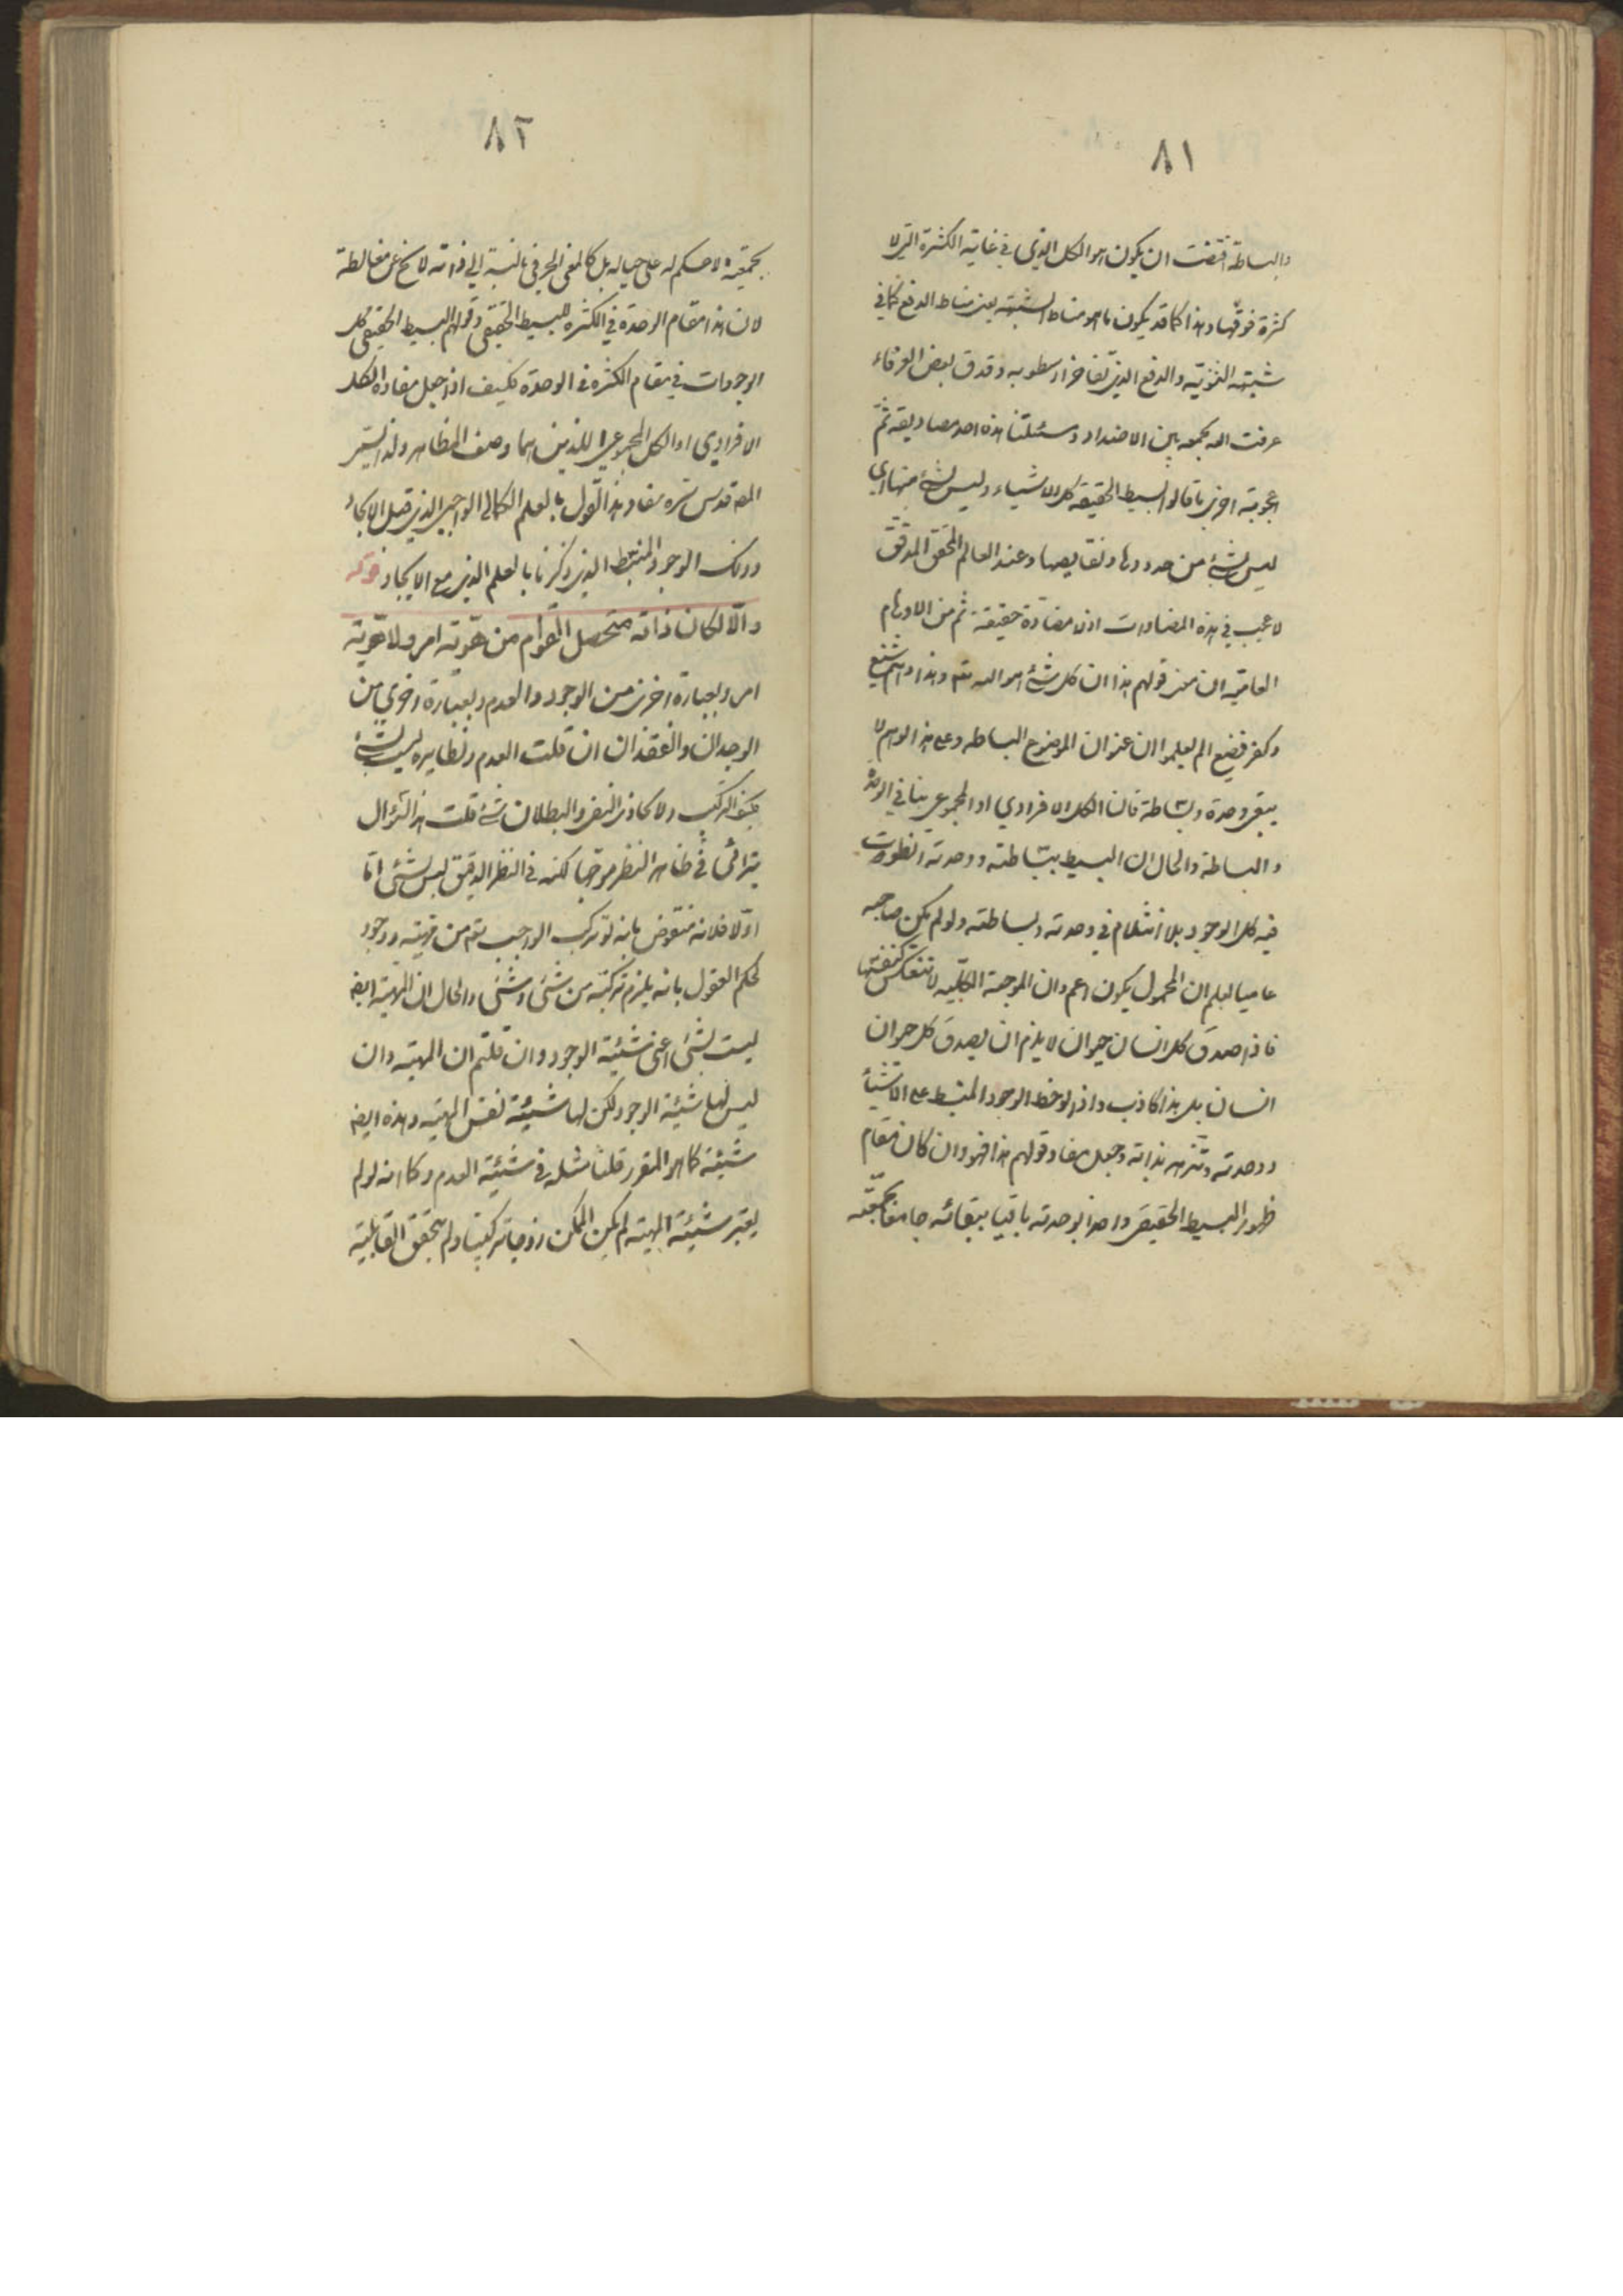 ٨١
والبساطة اقتضت ان يكون هو الكل الذي في غاية الكثرة التي لا
كثرة فوقها وهذا كما قد يكون ما هو مناط الشبهة بعينه مناط الدفع كما في
شبهة الثنوية والدفع الذي تفاخر ارسطو به وقد قال بعض العرفاء
عرفت الله بجمعه بين الاضداد ومسئلتنا هذه احد مصاديقه ثم
اعجوبة اخرى ما قالوا بسيط الحقيقة كل الاشياء وليس بشئ منها اي
ليس بشئ من حدودها ونقايصها وعند العالم المحقق المدقق
لا عجب في هذه المضادات اذ لا مضادة حقيقة ثم من الاوهام
العامية ان معنى قولهم هذا ان كل شئ هو الله تعالى وهذا وهم شنيع
وكفر فضيع الم يعلموا ان عنوان الموضوع البساطه وعلى هذا الوهم لا
يبقى وحدة وبساطة فان الكل الافرادي او المجموعي ينافي الوحدة
والبساطة والحال ان البسيط ببساطته ووحدته انطوت
فيه كل الوجود بلا انثلام في وحدته وبساطته ولو لم يكن صاحبه
عاميا لعلم ان المحمول يكون اعم وان الموجبة الكلية لا تنعكس كنفسها
فاذا صدق كل انسان حيوان لا يلزم ان يصدق كل حيوان
انسان بل هذا كاذب واذا لوحظ الوجود المنبسط على الاشياء
ووحدته وتنزهه بذاته وجعل مفاد قولهم هذا فهو وان كان مقام
ظهور البسيط الحقيقي واحدا بوحدته باقيا ببقائه جامعا بجمعيته
٨٢
بجمعيته لا حكم له على حياله بل كالمعنى الحرفي بالنسبة الى ذاته لا يخ عن مغالطة
لان هذا مقام الوحدة في الكثرة للبسيط الحقيقي وقولهم البسيط الحقيقي كل
الوجودات في مقام الكثرة في الوحدة فكيف اذا جعل مفاده الكل
الافرادي او الكل المجموعي اللذين هما وصف المظاهر ولذا يفسر
المص قدس سره مفاد هذا القول بالعلم الكمالي الواجبي الذي قبل الايجاد
وذلك الوجود المنبسط الذي ذكرنا بالعلم الذي مع الايجاد قوله
والا لكان ذاته متحصل القوام من هوية امر ولا هوية
امر وبعبارة اخرى من الوجود والعدم وبعبارة اخرى من
الوجدان والفقدان ان قلت العدم ونظايره ليست بشئ
فكيف التركب ولا يحاذى النفي والبطلان شئ قلت هذا السؤال
يترائى في ظاهر النظر موجها لكنه في النظر الدقيق ليس بشئ اما
اولا فلانه منقوض بانه لو تركب الواجب تعالى من مهية ووجود
لحكم العقول بانه يلزم تركبه من شئ وشئ والحال ان المهية ايضا
ليست بشئ اعني شيئية الوجود وان قلتم ان المهية وان
ليس لها شيئية الوجود لكن لها شيئية نفس المهية وهذه ايضا
شيئية كما هو المقرر قلنا مثله في شيئية العدم وكما انه لو لم
يعتبر شيئية المهية لم يكن الممكن زوجا تركيبيا ولم يتحقق القابلية